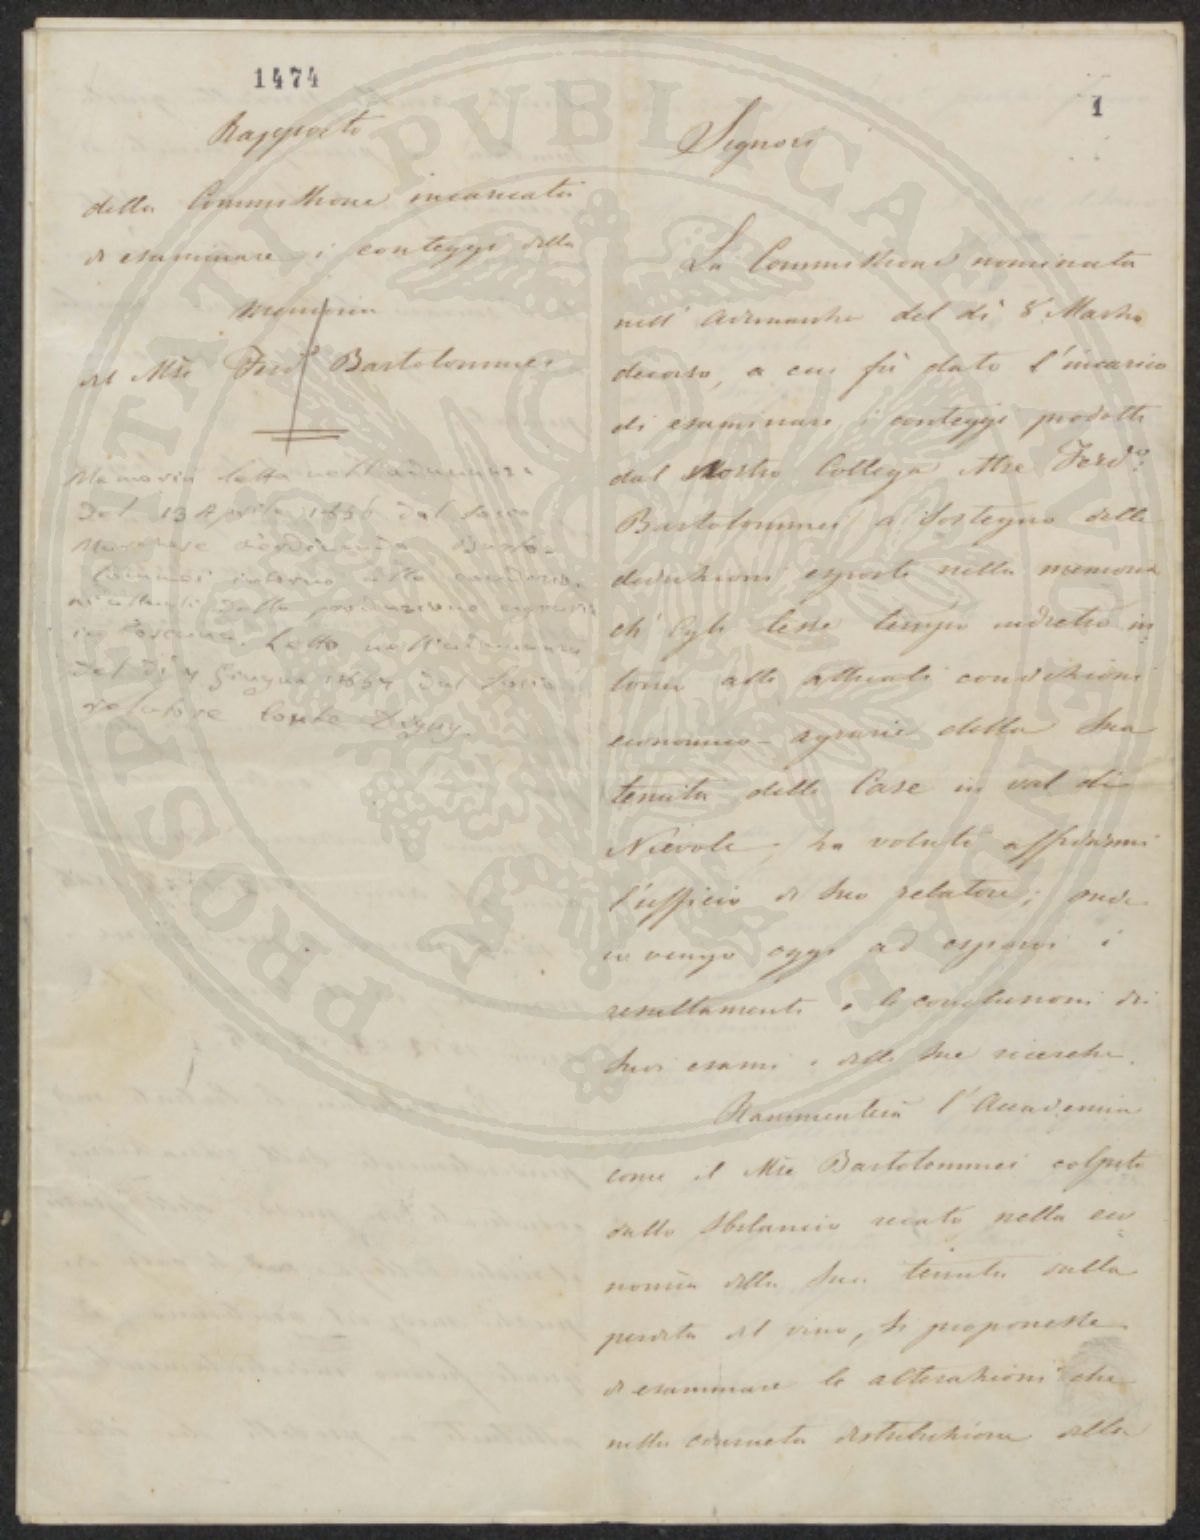 1474
Rapporto
della Commissione incaricata
di esaminare i conteggi della
memoria
del Mse Ferdo Bartolommei
Memoria letta nell'adunanza
del 13 Aprile 1856 dal socio
Marchese Ferdinando Barto-
lommei intorno alle condizio-
ni attuali della produzione agraria
in Toscana. Letto nell'adunanza
del dì 7 Giugno 1857 dal Socio
relatore Conte Digny.
1
Signori
La Commissione nominata
nell' adunanza del dì 8 Marzo
decorso, a cui fù dato l'incarico
di esaminare i conteggi prodotti
dal Nostro Collega Mse Ferdo:
Bartolommei a sostegno delle
deduzioni esposte nella memoria
ch' Egli lesse tempo indietro in=
torno alle attuali condizioni
economico-agrarie della Sua
tenuta delle Case in val di
Nievole, ha voluto affidarmi
l'ufficio di suo relatore; onde
io vengo oggi ad esporvi i
resultamenti e le conclusioni dei
suoi esami e delle sue ricerche.
Rammenterà l'Accademia
come il Mse Bartolommei colpito
dallo sbilancio recato nella eco=
nomia della Sua tenuta dalla
perdita del vino, si proponesse
di esaminare le alterazioni che
nella consueta distribuzione della
PROSPERITATI PVBLICAE AVGENDAE